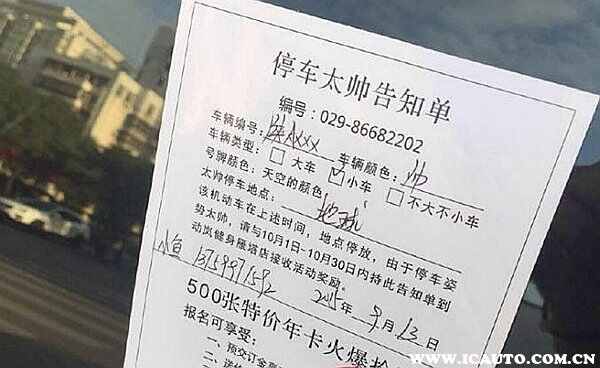 停车太帅告知单
编号:029-86682202
车辆编号:陕AXXX 车辆颜色:帅
车辆类型:□大车 ☑小车 □不大不小车
号牌颜色:天空的颜色
太帅停车地点:地球
该机动车在上述时间,地点停放,由于停车姿
势太帅,请与10月1日-10月30日内持此告知单到
动岚健身雁塔店接收活动奖励。
2015年9月13日
500张特价年卡火爆抢
报名可享受:
一、预交订金享
WWW.ICAUTO.COM.CN